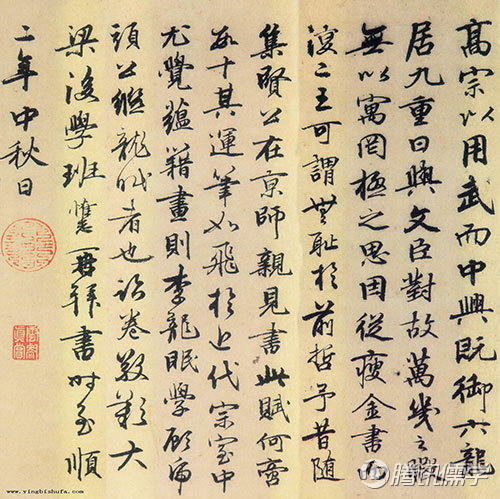 高宗以用武而中興既御六龍
居九重日與文臣對故萬幾之暇
無以寓罔極之思因從瘦金書
復二王可謂無恥於前哲予昔隨
集賢公在京師親見書此賦何啻
數十其運筆如飛於近代宗室中
尤覺蘊藉畫則李龍眠學顧師
公繼龍眠者也卷大
梁後學班惟再拜書時至順
二年中秋日
www.yingbishufa.com
腾讯儒学